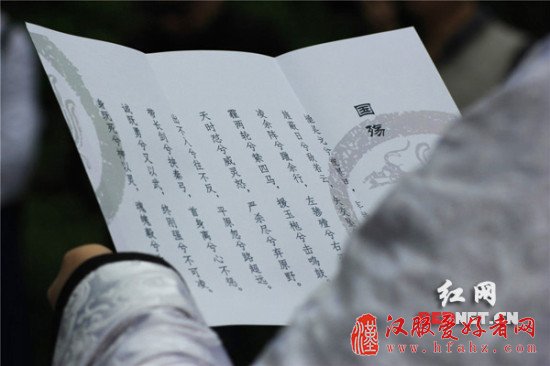 国殇
操吴戈兮
旌蔽日兮敌若云，矢交坠
凌余阵兮躐余行，左骖殪兮右
霾两轮兮絷四马，援玉枹兮击鸣鼓。
天时怼兮威灵怒，严杀尽兮弃原野。
出不入兮往不反，平原忽兮路超远。
带长剑兮挟秦弓，首身离兮心不惩。
诚既勇兮又以武，终刚强兮不可凌。
身既死兮神以灵，魂魄毅兮
红网
NET.CN
汉 汉服爱好者网
www.hfahz.com